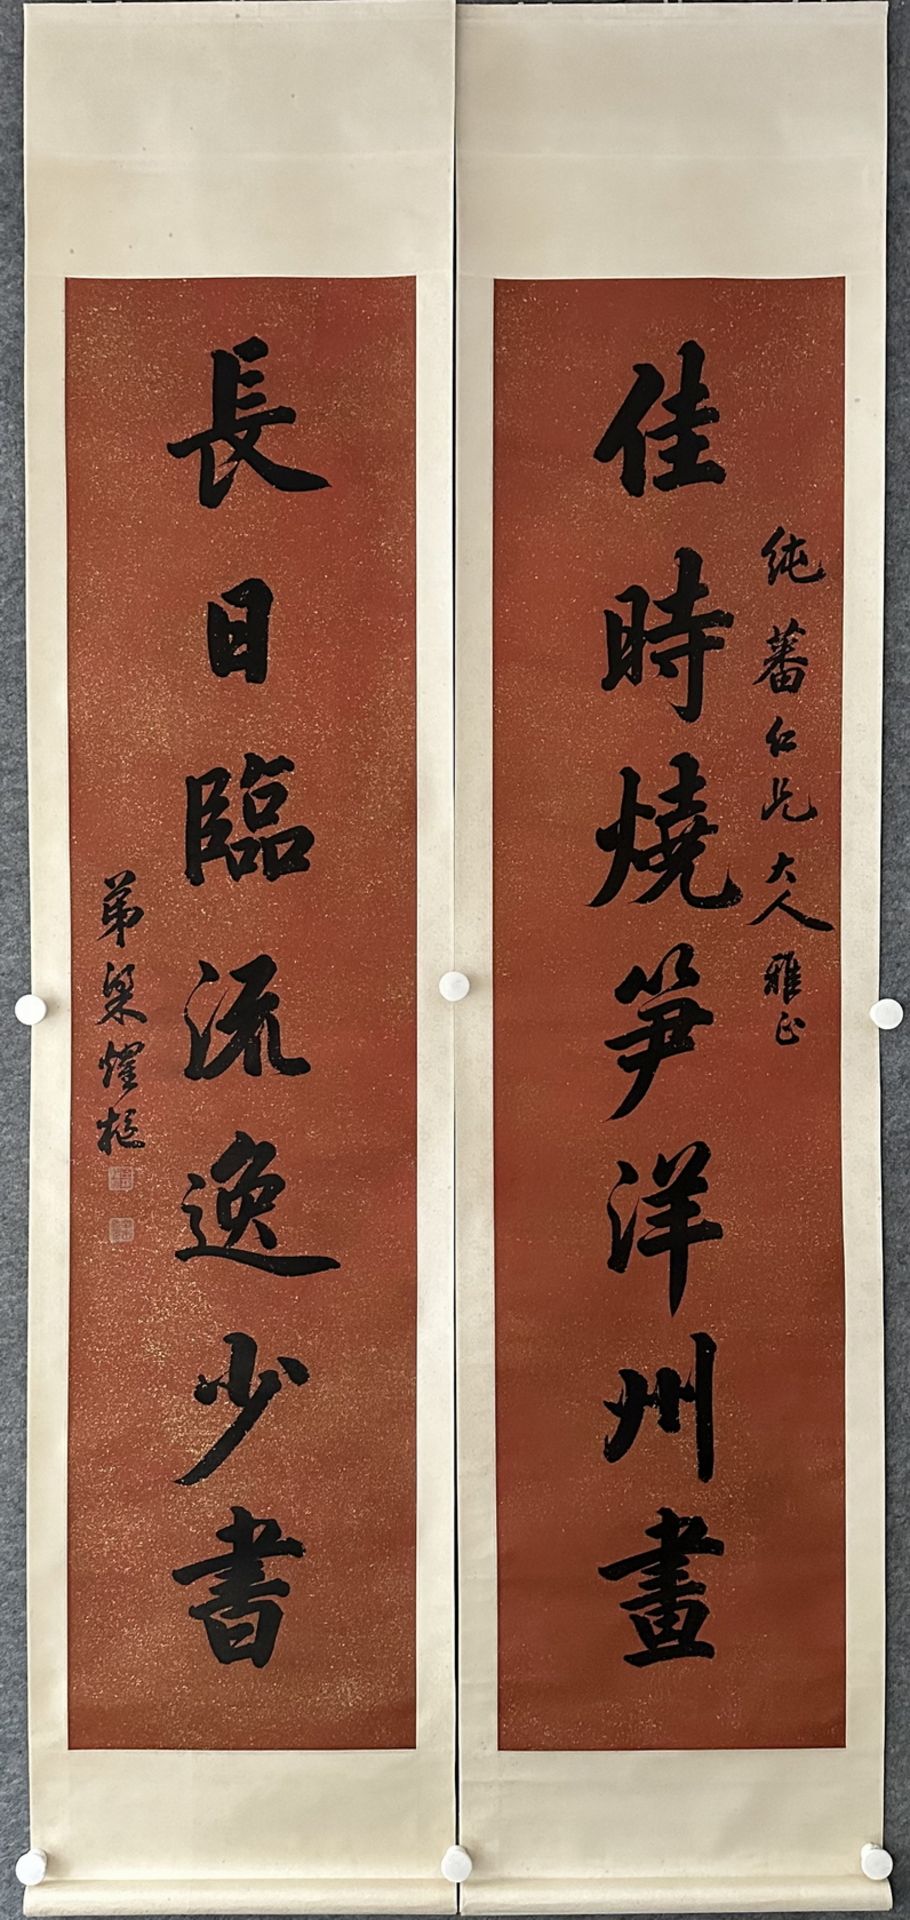 純蕃仁兄大人雅正
佳時燒笋洋州畫
長日臨流逸少書
弟梁燿樞